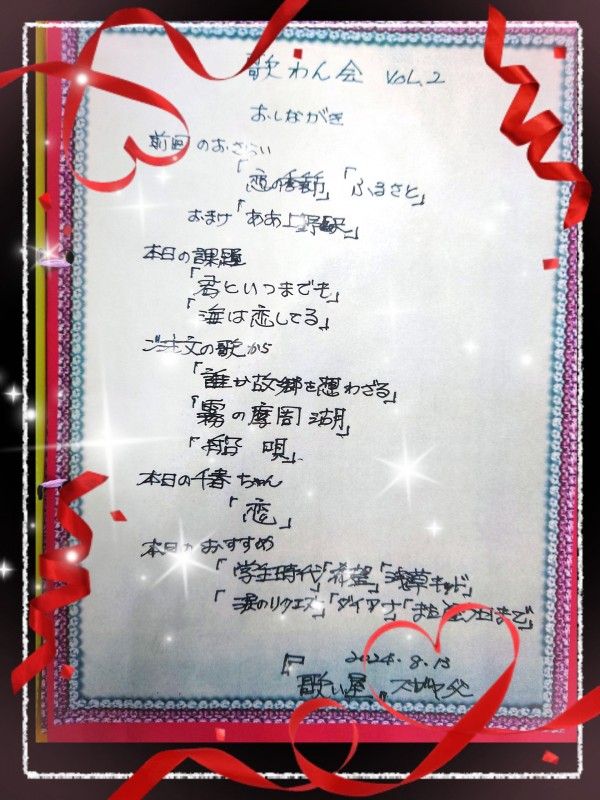 歌わん会 VOL.2
おしながき
前回のおさらい
「恋の季節」「ふるさと」
おまけ「ああ上野駅」
本日の課題
「君といつまでも」
「海は恋してる」
ご注文の歌から
「誰か故郷を想わざる」
「霧の摩周湖」
「舟唄」
本日の千春ちゃん
「恋」
本日のおすすめ
「学生時代」「希望」「浅草キッド」
「涙のリクエスト」「ダイアナ」「また逢う日まで」
2024.8.13
歌い屋